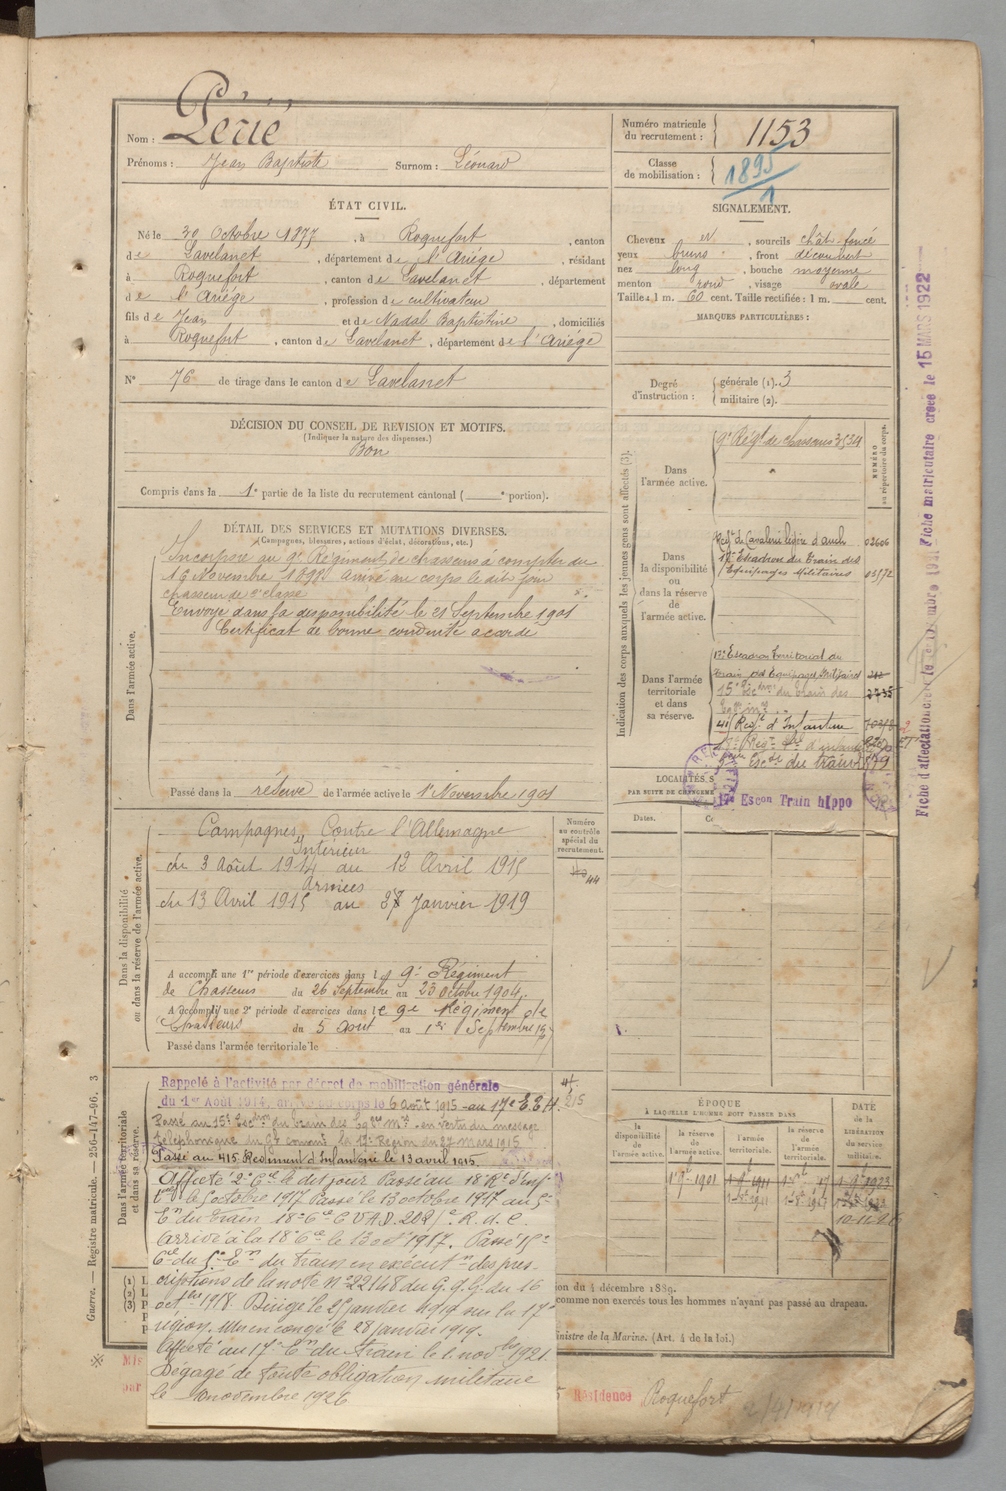 Nom : Périé
Prénoms : Jean Baptiste Surnom : Léonard
Numéro matricule du recrutement : 1153
Classe de mobilisation : 1895/1
ÉTAT CIVIL.
Né le 30 Octobre 1877, à Roquefort, canton
de Lavelanet, département de l'Ariége, résidant
à Roquefort, canton de Lavelanet, département
de l'Ariége, profession de cultivateur
fils de Jean et de Nadal Baptistine, domiciliés
à Roquefort, canton de Lavelanet, département de l'Ariège
N° 76 de tirage dans le canton de Lavelanet
SIGNALEMENT.
Cheveux et, sourcils chât. foncé
yeux bruns, front découvert
nez long, bouche moyenne
menton rond, visage ovale
Taille : 1 m. 60 cent. Taille rectifiée : 1 m. cent.
MARQUES PARTICULIÈRES :
Degré d'instruction : générale (1). 3
militaire (2).
DÉCISION DU CONSEIL DE REVISION ET MOTIFS.
(Indiquer la nature des dispenses.)
Bon
Compris dans la 1e partie de la liste du recrutement cantonal ( e portion).
DÉTAIL DES SERVICES ET MUTATIONS DIVERSES.
(Campagnes, blessures, actions d'éclat, décorations, etc.)
Dans l'armée active.
Incorporé au 9e Régiment de chasseurs à compter du
16 Novembre 1898 arrivé au corps le dit jour
chasseur de 2e classe
Envoyé dans la disponibilité le 21 Septembre 1901
Certificat de bonne conduite accordé
Passé dans la réserve de l'armée active le 1er Novembre 1901
Indication des corps auxquels les jeunes gens sont affectés (3).
NUMÉRO au répertoire du corps.
Dans l'armée active.
9e Régt de chasseurs 3534
Dans la disponibilité ou dans la réserve de l'armée active.
Régt de Cavalerie légère d'auch 02606
17e Escadron du Train des
Equipages Militaires 05172
Dans l'armée territoriale et dans sa réserve.
17e Escadron Territorial du
Train des Equipages Militaires
15e Escdron du train des
415 Régt d'Infanterie
5eme Escon du train 879
17e Escon Train hippo
LOCALITÉS S
PAR SUITE DE CHANGEME
Dates.
Fiche d'affectation créée le
Fiche matriculaire créée le 15 MARS 1922
Dans la disponibilité ou dans la réserve de l'armée active.
Numéro au contrôle spécial du recrutement.
44
Campagnes Contre l'Allemagne
Intérieur
du 3 Août 1914 au 12 Avril 1915
Armées
du 13 Avril 1915 au 27 Janvier 1919
A accompli une 1re période d'exercices dans le 9e Régiment
de Chasseurs du 26 Septembre au 23 Octobre 1904.
A accompli une 2e période d'exercices dans le 9e Régiment de
Chasseurs du 5 août au 1er Septembre
Passé dans l'armée territoriale le
Dans l'armée territoriale et dans sa réserve.
Rappelé à l'activité par décret de mobilisation générale
du 1er Août 1914, arrivé au corps le 6 août 1915 au 17e E.E.M.
215
Passé au 15e Escdron du train des Eqges Mres en vertu du message
téléphonique du Gal commt la 17e Région du 27 mars 1915
Passé au 415 Régiment d'Infanterie le 13 avril 1915.
Affecté 2e Cie le dit jour Passé au 18e Rt d'inf
le 5 octobre 1917 Passé le 13 octobre 1917 au 5e
En du Train 18e Cie C V A D. 202/e R. d. C.
arrivé à la 18e Cie le 13 oct 1917. Passé 15e
Cie du 5e En du train en exécutn des pres-
criptions de la note No 22148 du G. Q. G. du 16
octbre 1918. Dirigé le 25 janvier 1919 sur la 17e
région. Mis en congé le 28 janvier 1919.
Affecté au 17e En du Train le 1 novbre 1921
Dégagé de toute obligation militaire
le 10 novembre 1926
ÉPOQUE
À LAQUELLE L'HOMME DOIT PASSER DANS
la disponibilité de l'armée active.
la réserve de l'armée active.
l'armée territoriale.
la réserve de l'armée territoriale.
DATE de la LIBÉRATION du service militaire.
1 9bre 1901
10-11-26
ion du 4 décembre 1889.
comme non exercés tous les hommes n'ayant pas passé au drapeau.
inistre de la Marine. (Art. 4 de la loi.)
Guerre. — Registre matricule. — 256-147-96. 3
Mis
par
Résidence Roquefort